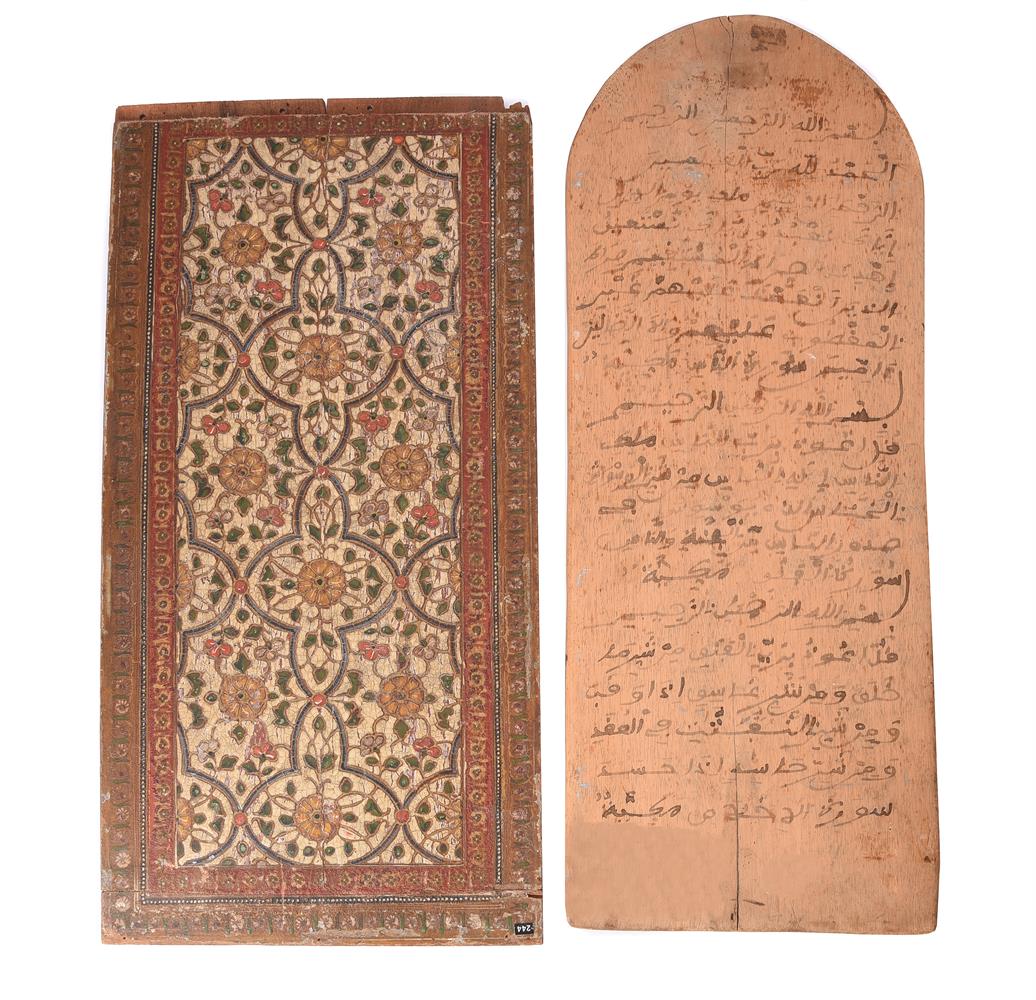 بسم الله الرحمن الرحيم
الحمد لله رب العلمين
الرحمن الرحيم ملك يوم الدين
إياك نعبد وإياك نستعين
اهدنا الصراط المستقيم صراط
الذين أنعمت عليهم غير
المغضوب عليهم ولا الضالين
ءامين سورة الناس مكية
بسم الله الرحمن الرحيم
قل اعوذ برب الناس ملك
الناس إله الناس من شر الوسواس
الخناس الذي يوسوس في
صدور الناس من الجنة والناس
سورة الفلق مكية
بسم الله الرحمن الرحيم
قل اعوذ برب الفلق من شر ما
خلق ومن شر غاسق اذا وقب
ومن شر النفثت في العقد
ومن شر حاسد اذا حسد
سورة الاخلاص مكية
244